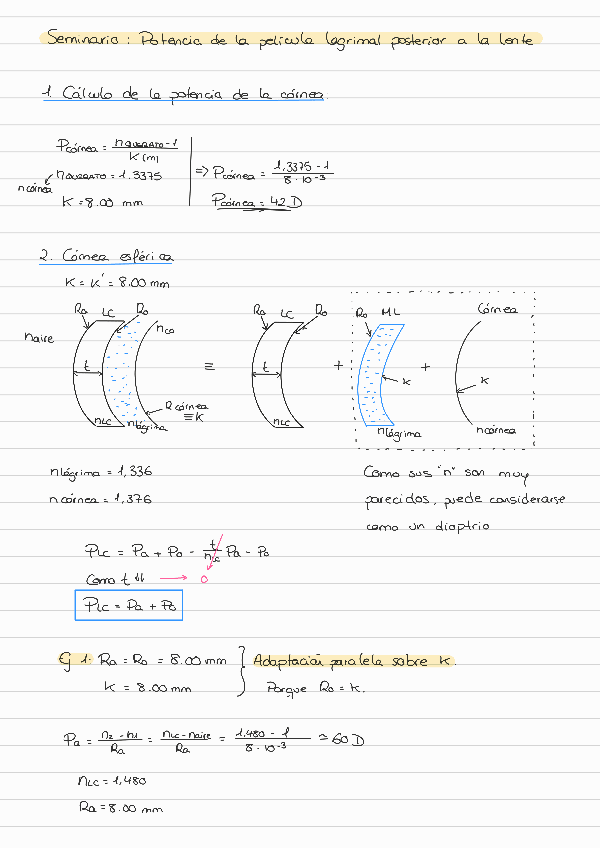 Seminario: Potencia de la película lagrimal posterior a la lente
1. Cálculo de la potencia de la córnea.
Pcórnea = nQUERATO-1 / K(m)
nQUERATO = 1.3375
ncórnea
K = 8.00 mm
=> Pcórnea = 1,3375 - 1 / 8·10⁻³
Pcórnea = 42 D
2. Córnea esférica
K = K' = 8.00 mm
Ra LC Ro nco
naire
t
nLC nlágrima
Rcórnea ≡ K
≡
Ra LC Ro
t
nLC
+
Ro ML
K
nlágrima
+
Córnea
K
ncórnea
nlágrima = 1,336
ncórnea = 1,376
Como sus "n" son muy
parecidos, puede considerarse
como un dioptrio
PLC = Pa + Po - t/nLC Pa · Po
Como t ↓↓ → 0
PLC = Pa + Po
Ej 1: Ra = Ro = 8.00 mm
K = 8.00 mm
Adaptación paralela sobre K.
Porque Ro = K.
Pa = n2 - n1 / Ra = nLC - naire / Ra = 1,480 - 1 / 8·10⁻³ ≃ 60 D
nLC = 1,480
Ra = 8.00 mm